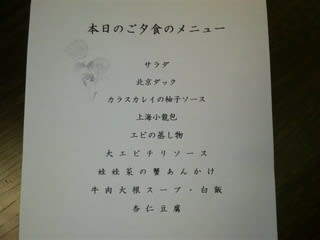 本日のご夕食のメニュー
サラダ
北京ダック
カラスカレイの柚子ソース
上海小龍包
エビの蒸し物
大エビチリソース
娃娃菜の蟹あんかけ
牛肉大根スープ・白飯
杏仁豆腐